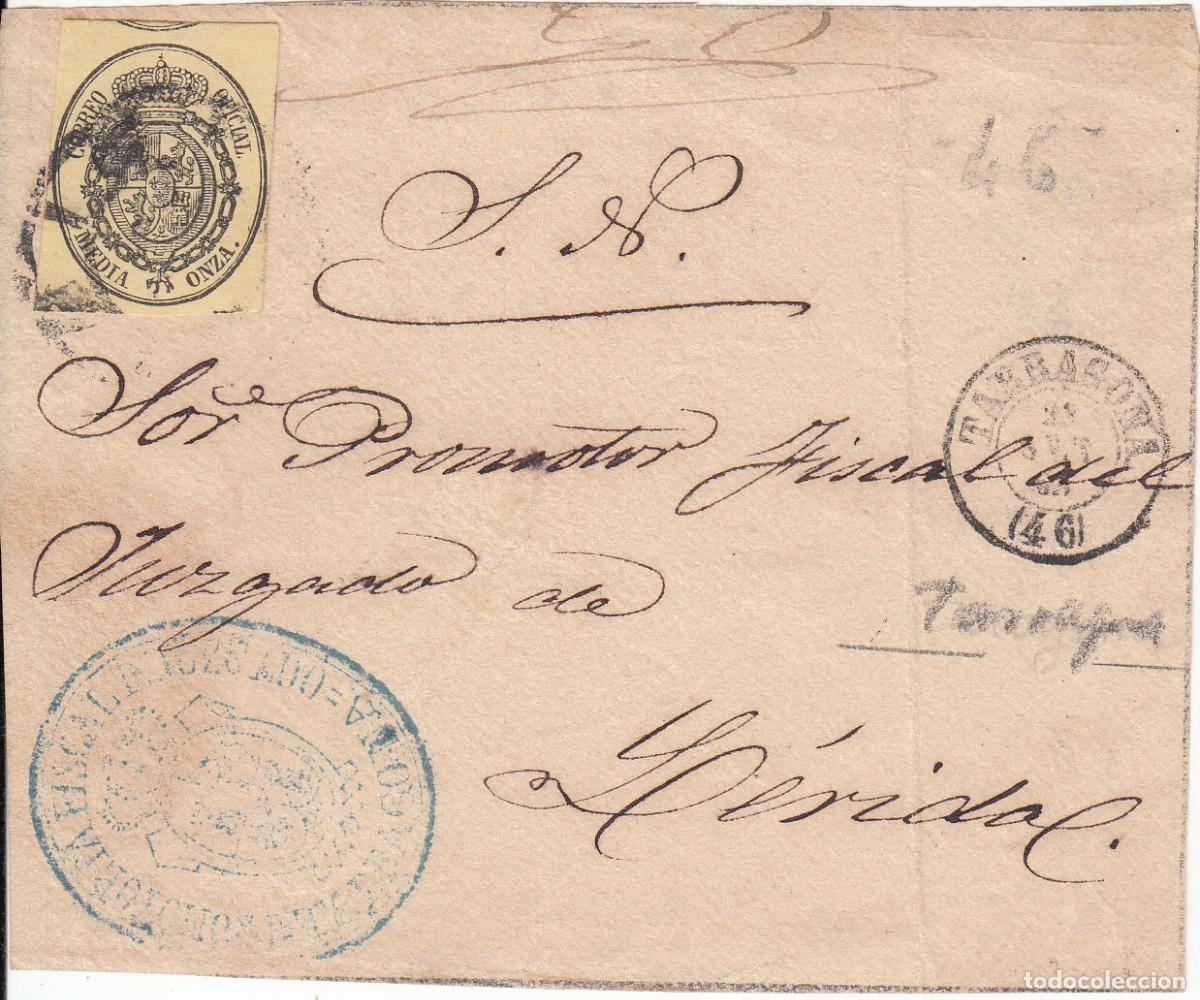 CORREO OFICIAL.
MEDIA ONZA.
46
S. N.
Sor. Promotor Fiscal del
Juzgado de
Lérida.
TARRAGONA
(46)
Tarragona
PROMOTORIA FISCAL
TARRAGONA
todocoleccion